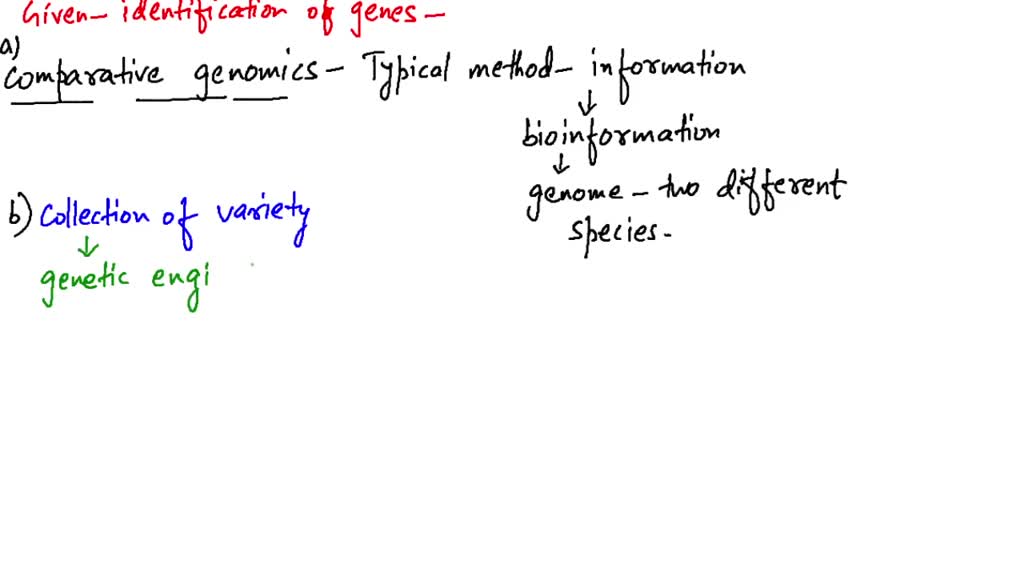 Given - identification of genes -
a)
Comparative genomics - Typical method - information
↓
bioinformation
↓
genome - two different
species -
b) Collection of variety
↓
genetic engi